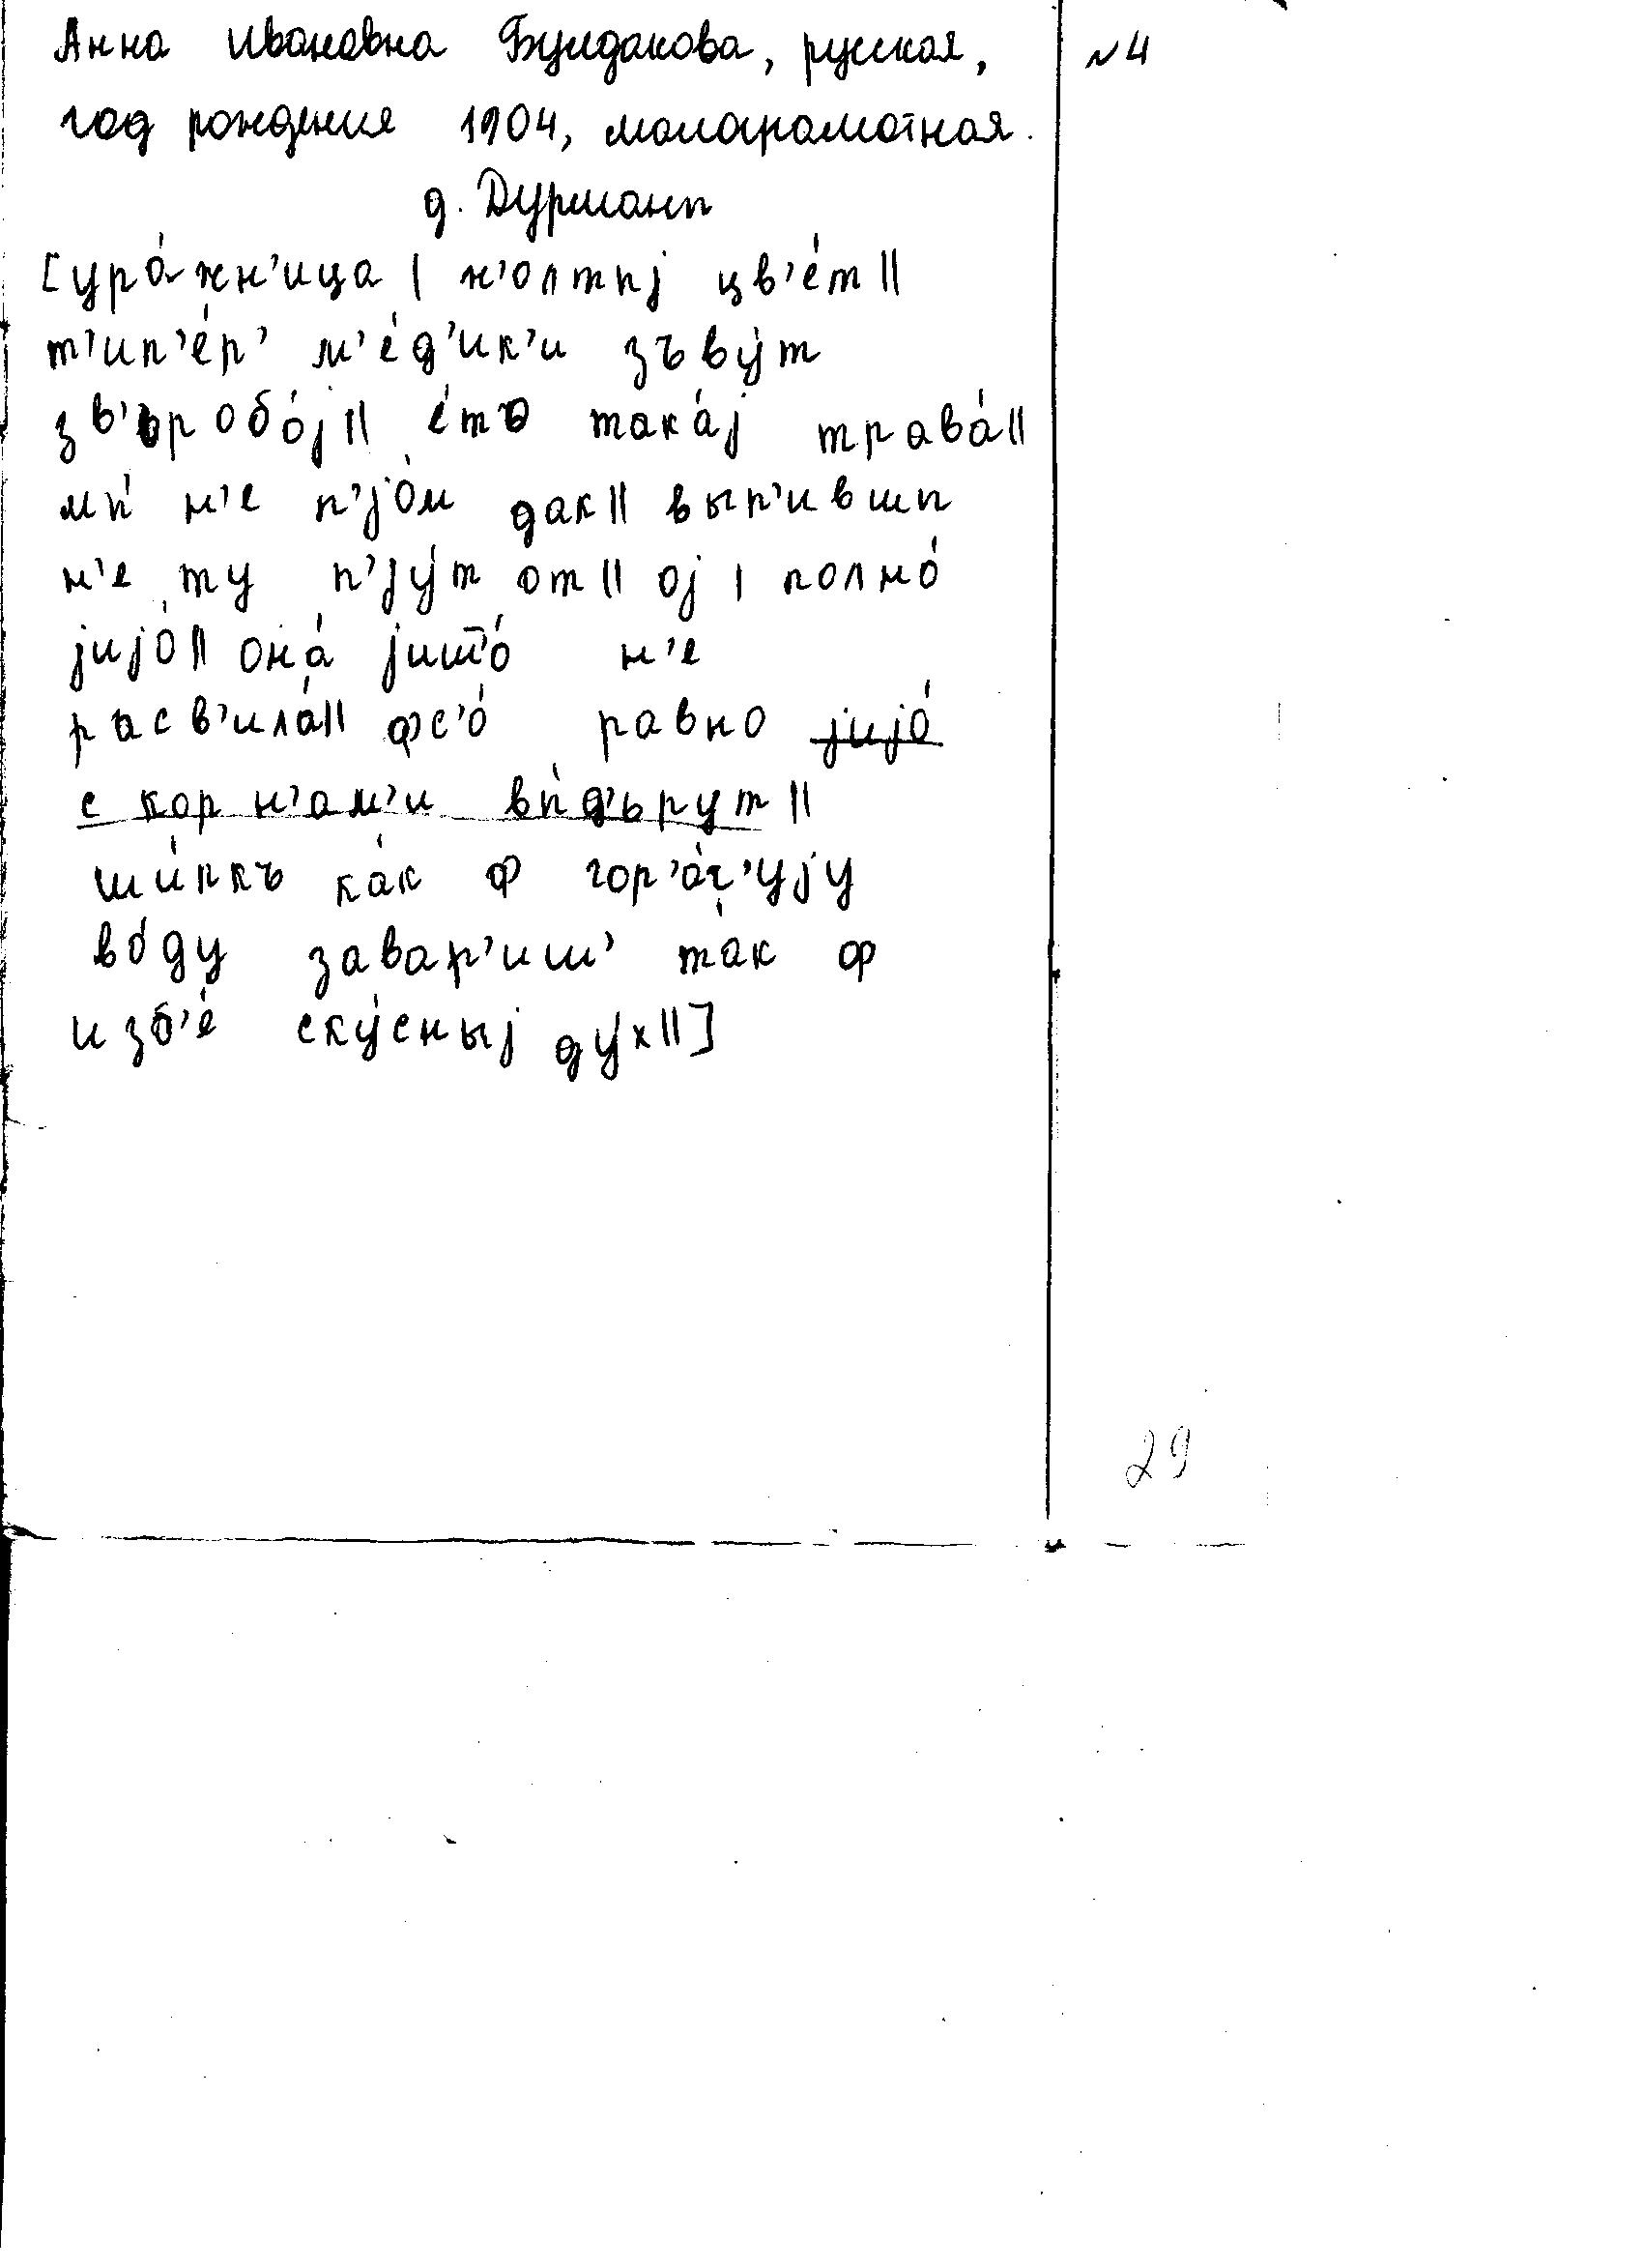 Анна Ивановна Булдакова, русская,
№ 4
год рождения 1904, малограмотная.
д. Дурманы
[ура́жн'ица | ж'олтыj цв'е́т ||
т'ип'е́р' м'е́д'ик'и зъву́т
зв'ьробо́j || е́тъ така́j трава́ ||
мы́ н'е п'jо́м дак || вып'ившы
н'е ту п'jу́т от || оj | полно́
jиjо́ || она́ jишо́ н'е
расв'ила́ || фс'о́ равно jиjо́
с корн'ам'и вы́д'ьрут ||
шы́пкъ ка́к ф гор'а́ч'уjу
во́ду завар'иш' та́к ф
изб'е́ ску́сныj ду́х ||]
29